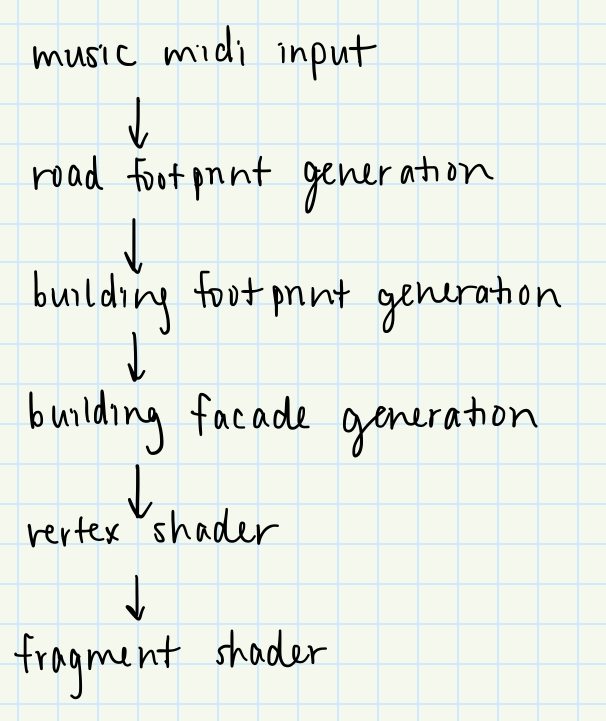 music midi input
road footprint generation
building footprint generation
building facade generation
vertex shader
fragment shader